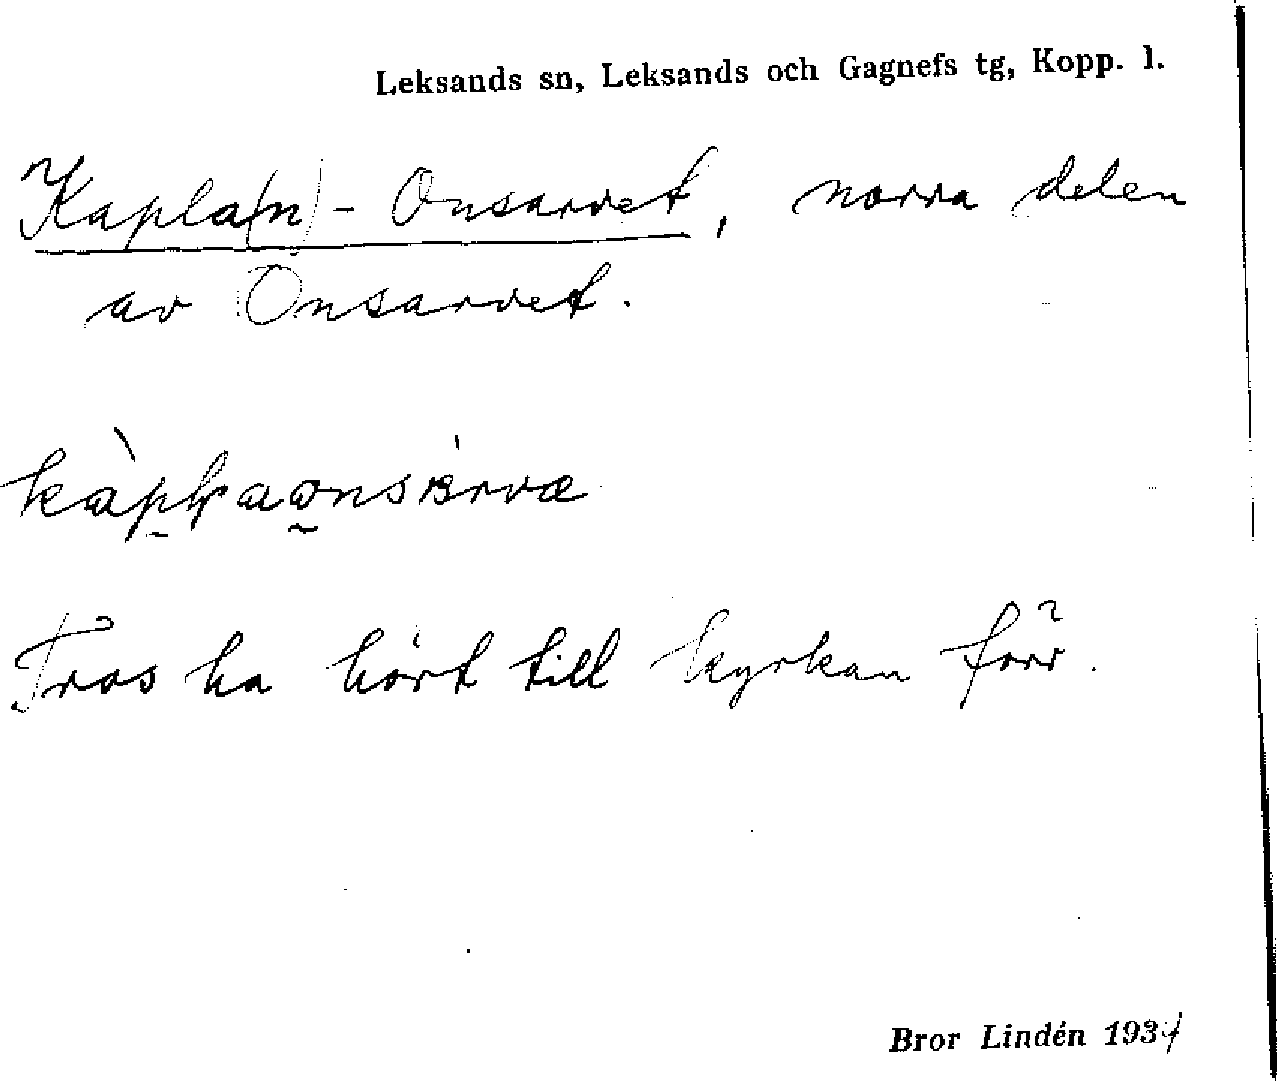 Leksands sn, Leksands och Gagnefs tg, Kopp. l.
Kapla(n)-Onsarvet, norra delen
av Onsarvet.
Tros ha hört till kyrkan förr.
Bror Lindén 1934